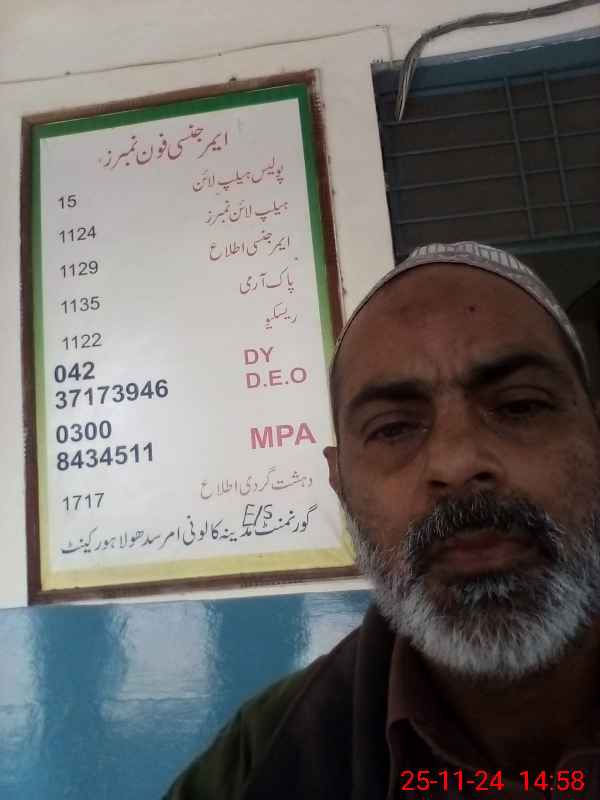 ایمرجنسی فون نمبرز
پولیس ہیلپ لائن 15
ہیلپ لائن نمبرز 1124
ایمرجنسی اطلاع 1129
پاک آرمی 1135
ریسکیو 1122
042 DY
37173946 D.E.O
0300 MPA
8434511
دہشت گردی اطلاع 1717
E/S
گورنمنٹ مدینہ کالونی امرسدھو لاہور کینٹ
25-11-24 14:58